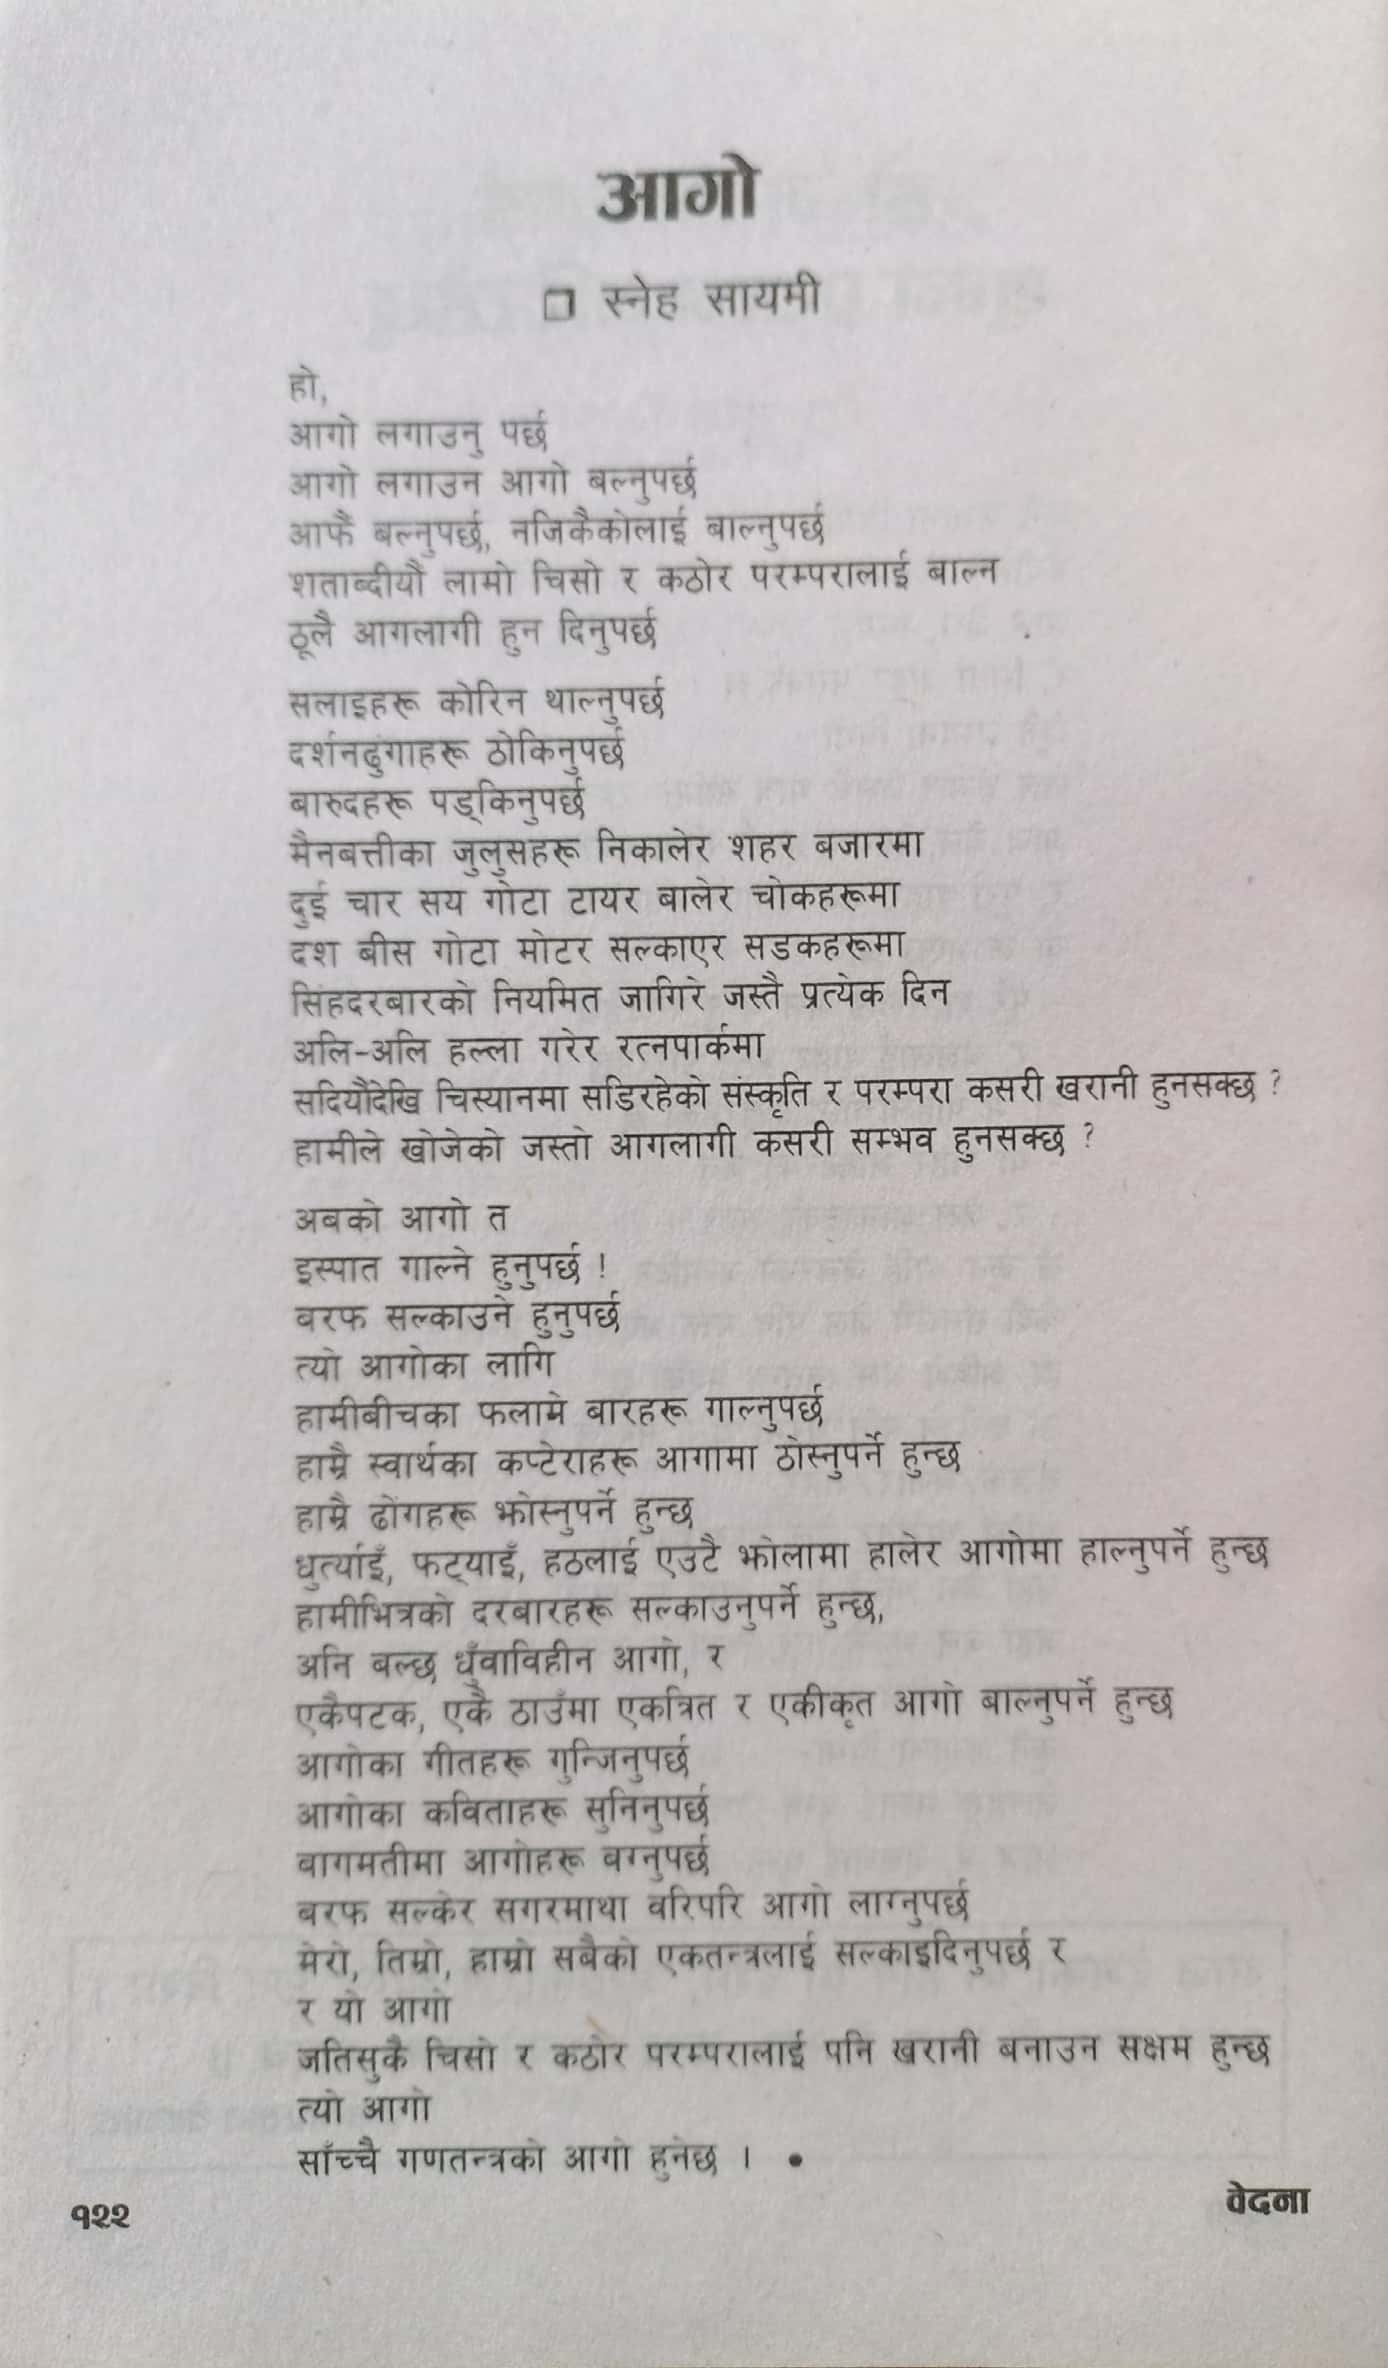 आगो
□ स्नेह सायमी
हो,
आगो लगाउनु पर्छ
आगो लगाउन आगो बल्नुपर्छ
आफैं बल्नुपर्छ, नजिकैकोलाई बाल्नुपर्छ
शताब्दीयौं लामो चिसो र कठोर परम्परालाई बाल्न
ठूलै आगलागी हुन दिनुपर्छ
सलाइहरू कोरिन थाल्नुपर्छ
दर्शनढुंगाहरू ठोकिनुपर्छ
बारुदहरू पड्किनुपर्छ
मैनबत्तीका जुलुसहरू निकालेर शहर बजारमा
दुई चार सय गोटा टायर बालेर चोकहरूमा
दश बीस गोटा मोटर सल्काएर सडकहरूमा
सिंहदरबारको नियमित जागिरे जस्तै प्रत्येक दिन
अलि-अलि हल्ला गरेर रत्नपार्कमा
सदियौंदेखि चिस्यानमा सडिरहेको संस्कृति र परम्परा कसरी खरानी हुनसक्छ ?
हामीले खोजेको जस्तो आगलागी कसरी सम्भव हुनसक्छ ?
अबको आगो त
इस्पात गाल्ने हुनुपर्छ !
बरफ सल्काउने हुनुपर्छ
त्यो आगोका लागि
हामीबीचका फलामे बारहरू गाल्नुपर्छ
हाम्रै स्वार्थका कप्टेराहरू आगामा ठोस्नुपर्ने हुन्छ
हाम्रै ढोंगहरू झोस्नुपर्ने हुन्छ
धुर्त्याइँ, फट्याइँ, हठलाई एउटै झोलामा हालेर आगोमा हाल्नुपर्ने हुन्छ
हामीभित्रको दरबारहरू सल्काउनुपर्ने हुन्छ,
अनि बल्छ धुँवाविहीन आगो, र
एकैपटक, एकै ठाउँमा एकत्रित र एकीकृत आगो बाल्नुपर्ने हुन्छ
आगोका गीतहरू गुन्जिनुपर्छ
आगोका कविताहरू सुनिनुपर्छ
बागमतीमा आगोहरू बग्नुपर्छ
बरफ सल्केर सगरमाथा वरिपरि आगो लाग्नुपर्छ
मेरो, तिम्रो, हाम्रो सबैको एकतन्त्रलाई सल्काइदिनुपर्छ र
र यो आगो
जतिसुकै चिसो र कठोर परम्परालाई पनि खरानी बनाउन सक्षम हुन्छ
त्यो आगो
साँच्चै गणतन्त्रको आगो हुनेछ । •
१२२
वेदना